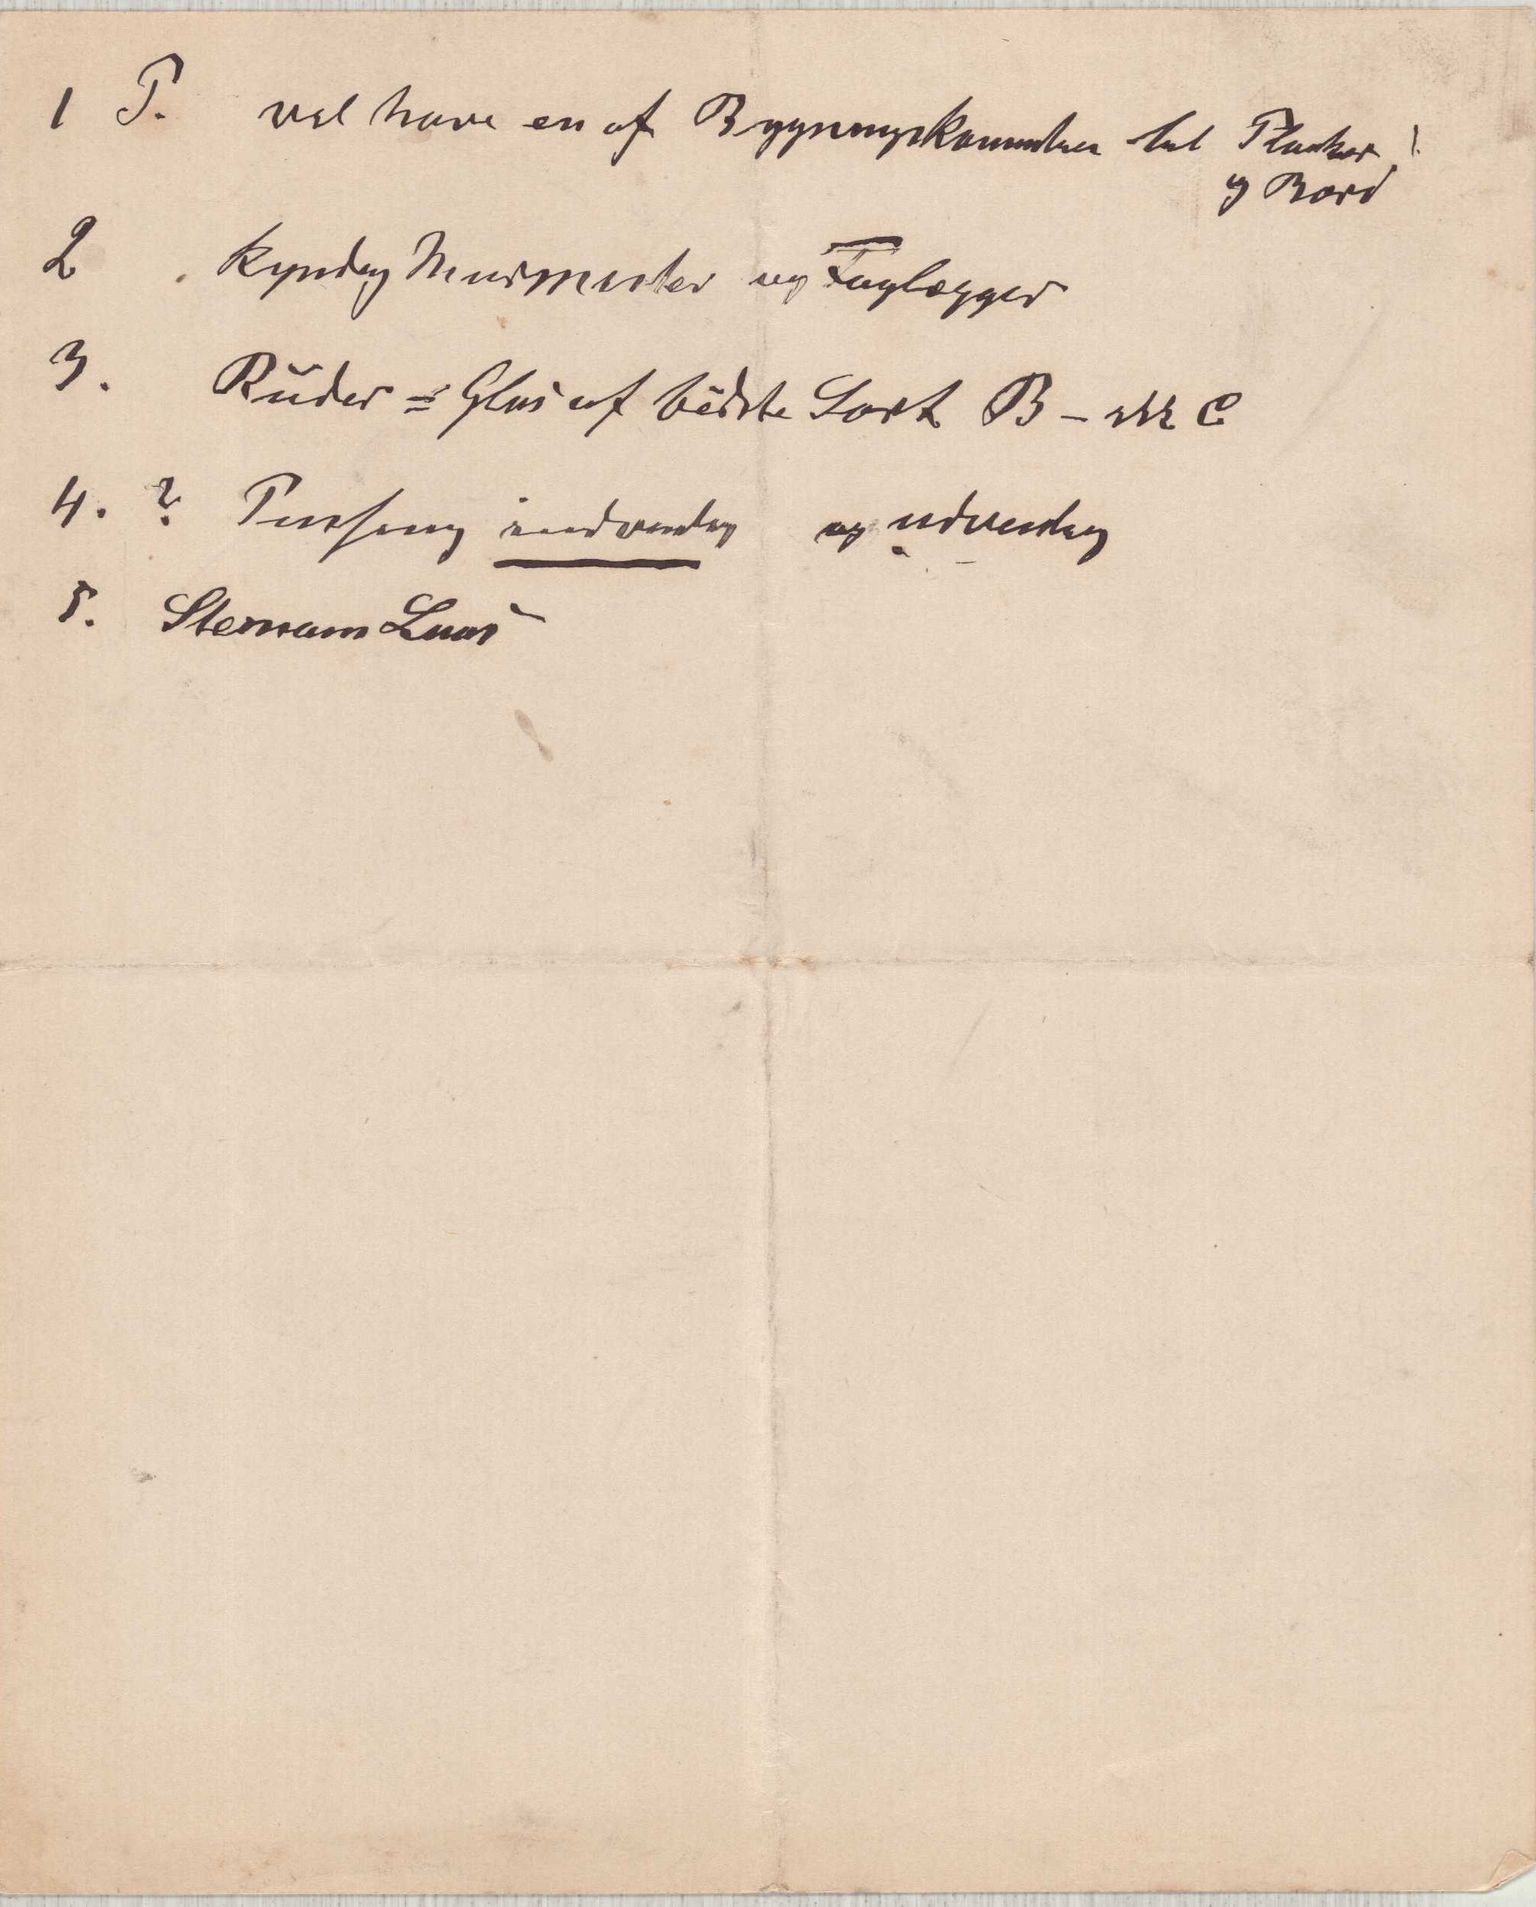 1 P. vil have en af Bygningskomiteen til Planker!
og Bord
2 kyndig Murmester og Taglægger
3. Rŭder = Glas af bedste Sort B - ikke C
4. ? Pusning indvendig og udvendig
5.